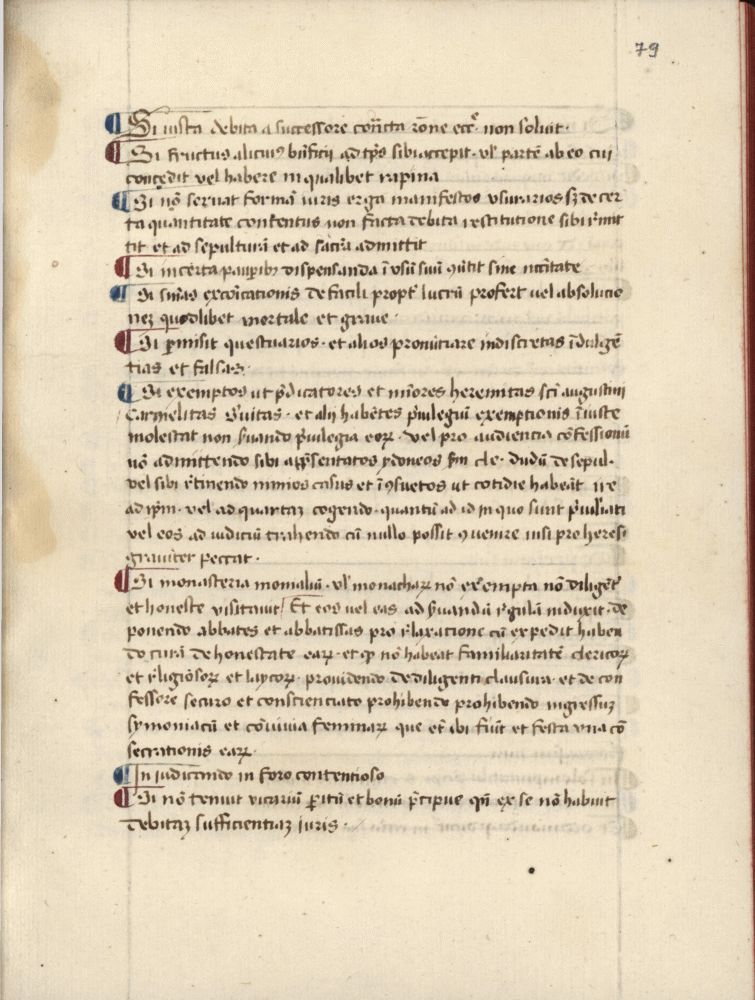 79
¶ Si iusta debita a successore cōtr̄cta rōne ecc̄e · non soluit ·
¶ Si fructus alicuiꝰ bn̄ficij ad tp̄s sibi accepit · ul' partē ab eo cui
concedit vel habere in qualibet rapina
¶ Si nō seruat formā iuris erga manifestos vsurarios sꝫ de cer
ta quantitate contentus non facta debita restitutione sibi r̄mit
tit et ad sepulturā et ad sacr̄a admittit
¶ Si incerta pauꝑibꝫ dispensanda ī vsū suū ꝯūtit sine nc̄c̄itate
¶ Si sn̄ias excōicationis de facili propt̄ lucrū profert uel absolucio
neꝫ quodlibet mortale et graue ·
¶ Si ꝑmisit questuarios · et alios pronūciare indiscretas īdulgē
tias et falsas ·
¶ Si exemptos ut p̄dicatores et mīores heremitas sc̄i augustini
Carmelitas s̄uitas · et alij habētes p̄iulegiū exemptionis īiuste
molestat non s̄uando p̄iulegia eoꝝ · vel pro audiencia cōfessionū
nō admittendo sibi app̄sentatos ydoneos s̄m cle · dudū de sepul ·
vel sibi r̄tinendo nimios casus et īꝯsuetos ut cotidie habeāt ire
ad ip̄m · vel ad quartaꝫ cogendo · quantū ad id in quo sunt p̄iul'iati
vel eos ad iudiciū trahendo cū nullo possit ꝯuenire nisi pro heresi
grauiter peccat ·
¶ Si monasteria monialiū · ul' monachaꝝ nō exempta nō diligēt̄
et honeste visitauit / Et eos uel eas ad s̄uandā r̄gulā induxit · de
ponendo abbates et abbatissas pro r̄laxacione cū expedit haben
do curā de honestate eaꝝ · et ꝙ nō habeāt familiaritatē clericoꝝ
et r̄ligiōsoꝝ et laycoꝝ · prouidendo de diligenti clausura · et de con
fessore securo et conscienciato prohibendo prohibendo ingressuꝫ
symoniacū et cōuiuia feminaꝝ que et̄ ibi fiūt et festa vna cō
secrationis eaꝝ ·
¶ In iudicando in foro contentioso
¶ Si nō tenuit vicariū ꝑitū et bonū p̄cipue qn̄ ex se nō habuit
debitaꝫ sufficientiaꝫ iuris ·